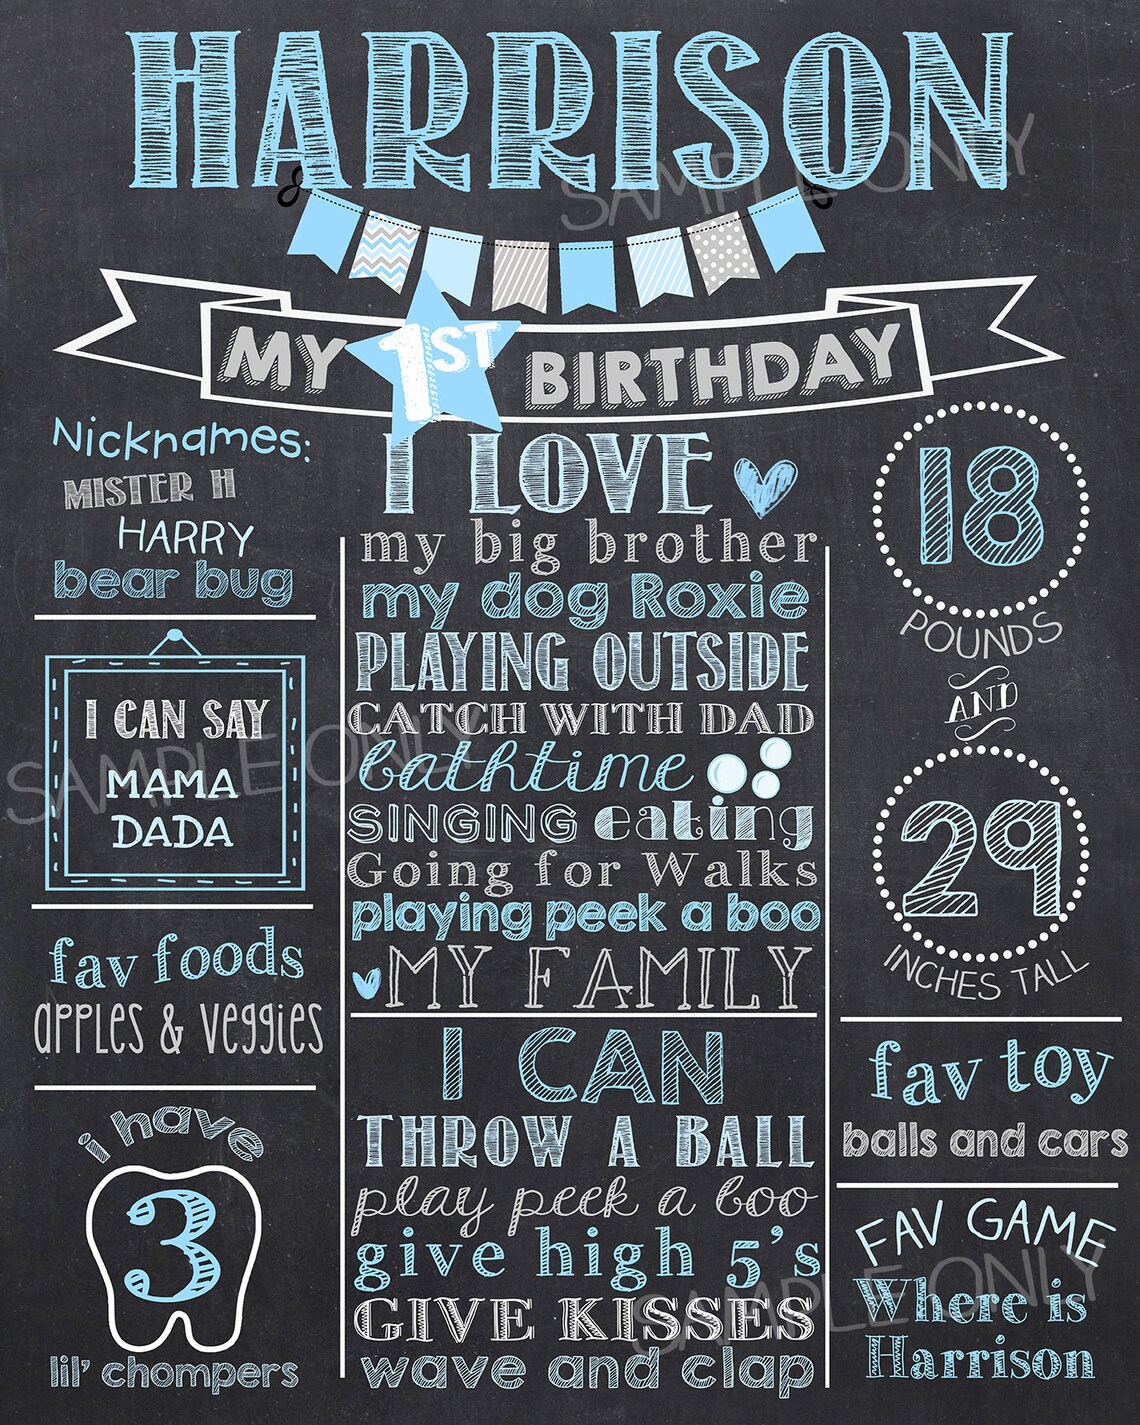 HARRISON
MY 1ST BIRTHDAY
Nicknames:
MISTER H
HARRY
bear bug
I CAN SAY
MAMA
DADA
fav foods
apples & veggies
i have
3
lil' chompers
I LOVE
my big brother
my dog Roxie
PLAYING OUTSIDE
CATCH WITH DAD
bathtime
SINGING eating
Going for Walks
playing peek a boo
MY FAMILY
I CAN
THROW A BALL
play peek a boo
give high 5's
GIVE KISSES
wave and clap
18
POUNDS
AND
29
INCHES TALL
fav toy
balls and cars
FAV GAME
Where is
Harrison
SAMPLE ONLY
SAMPLE ONLY
SAMPLE ONLY